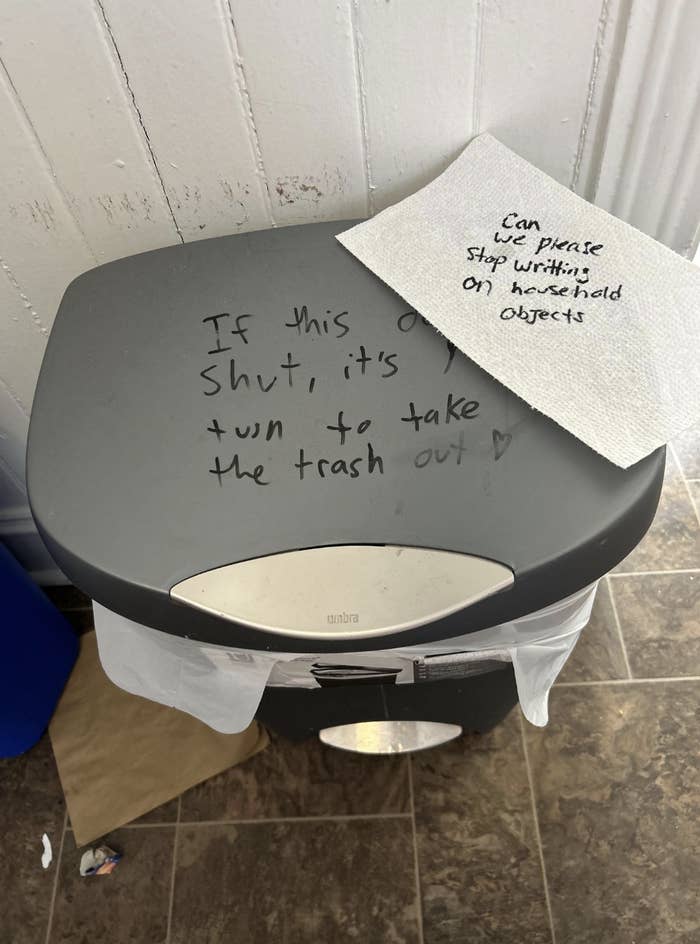 Can
we please
stop writting
on household
objects
If this
shut, it's
turn to take
the trash out ♡
umbra